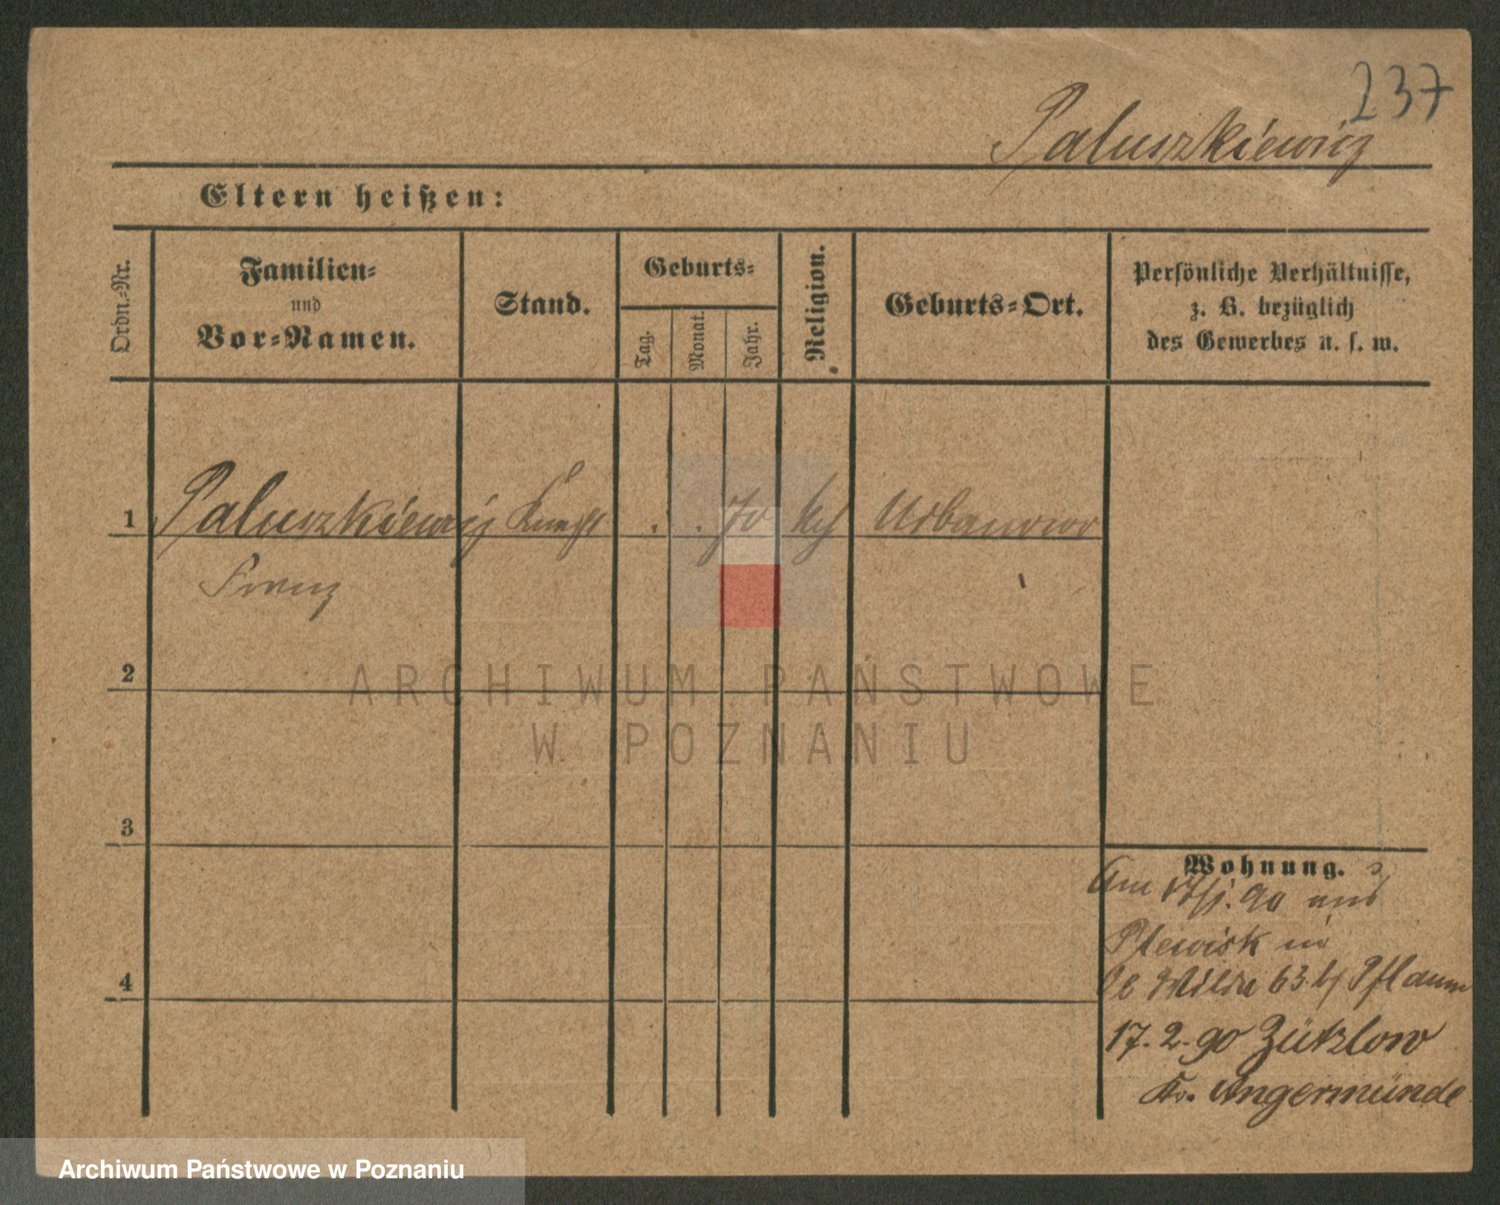 237
Paluszkiewicz
Eltern heißen:
Ordn.-Nr.
Familien-
und
Vor-Namen.
Stand.
Geburts-
Tag.
Monat.
Jahr.
Religion.
Geburts-Ort.
Persönliche Verhältnisse,
z. B. bezüglich
des Gewerbes u. s. w.
1 Paluszkiewicz Knecht . . 70 kth Urbanowo
Franz
2
ARCHIWUM PAŃSTWOWE
W POZNANIU
3
Wohnung.
Am 17/1. 90 aus
Plewisk in
Wilda 63. b/ Pflaum
4
17. 2. 90 Zützlow
Kr. Angermünde
Archiwum Państwowe w Poznaniu